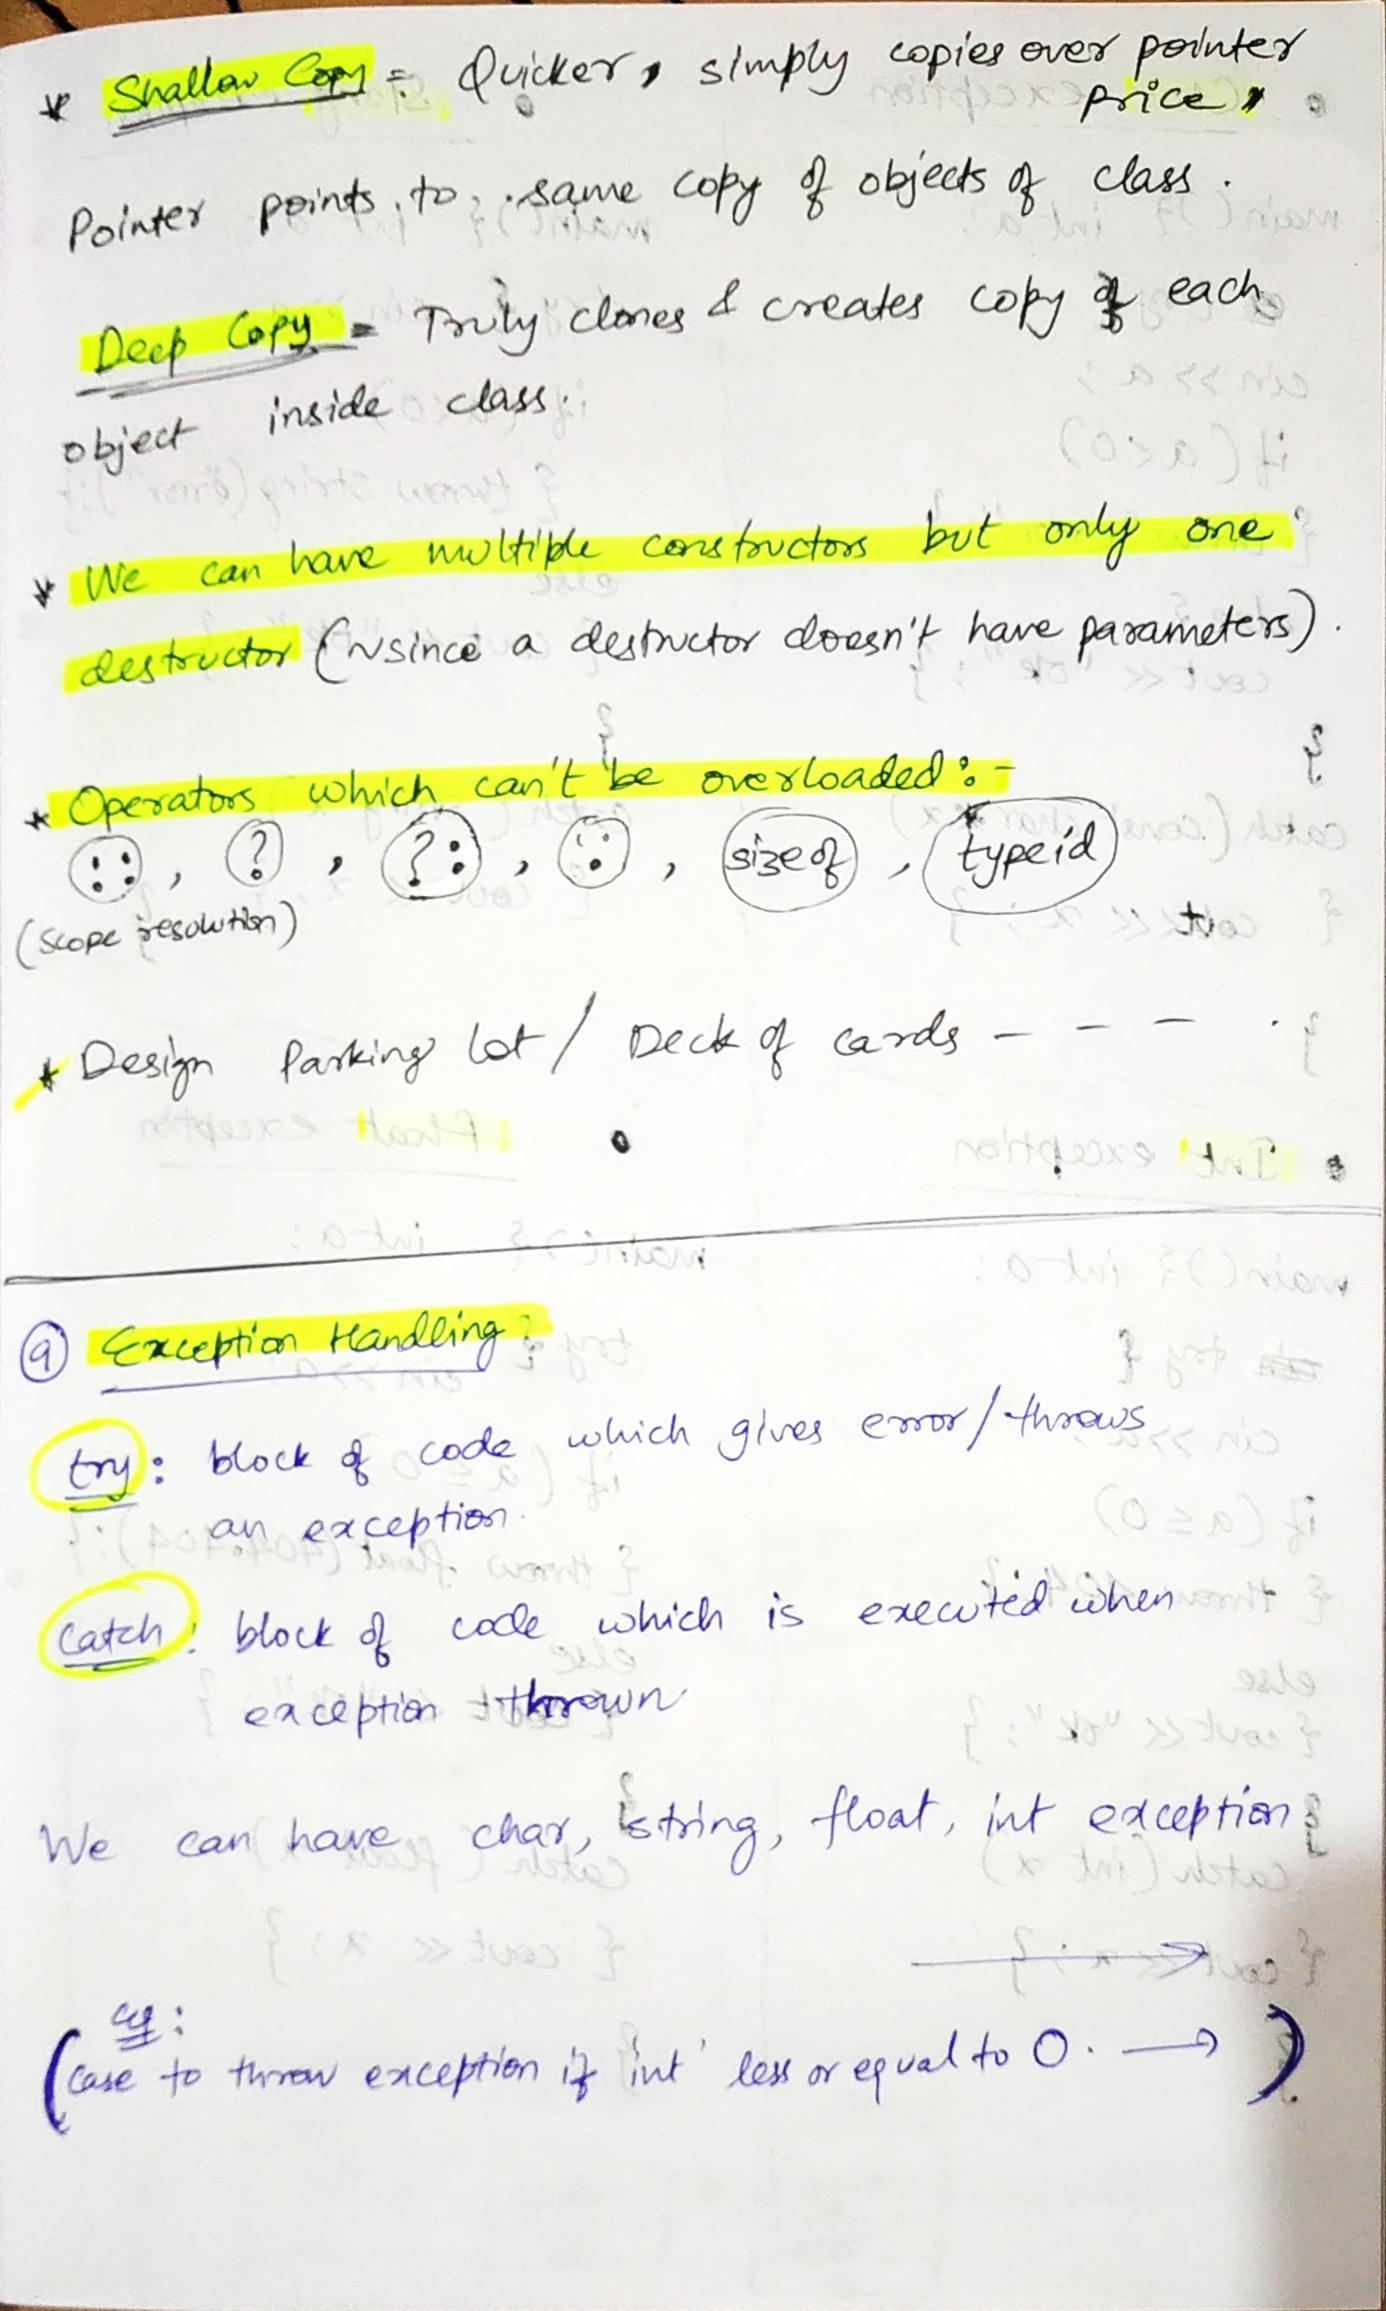 * Shallow Copy = Quicker, simply copies over pointer
price,
Pointer points to same copy of objects of class.
Deep Copy = Truly clones & creates copy of each
object inside class.
* We can have multiple constructors but only one
destructor (~since a destructor doesn't have parameters).
* Operators which can't be overloaded :-
::, ?, ?:, sizeof, typeid
(scope resolution)
* Design Parking lot / Deck of cards - - - .
9 Exception Handling :
try : block of code which gives error/throws
an exception.
catch : block of code which is executed when
exception thrown
We can have char, string, float, int exception
→
eg :
(case to throw exception if 'int' less or equal to 0. → )